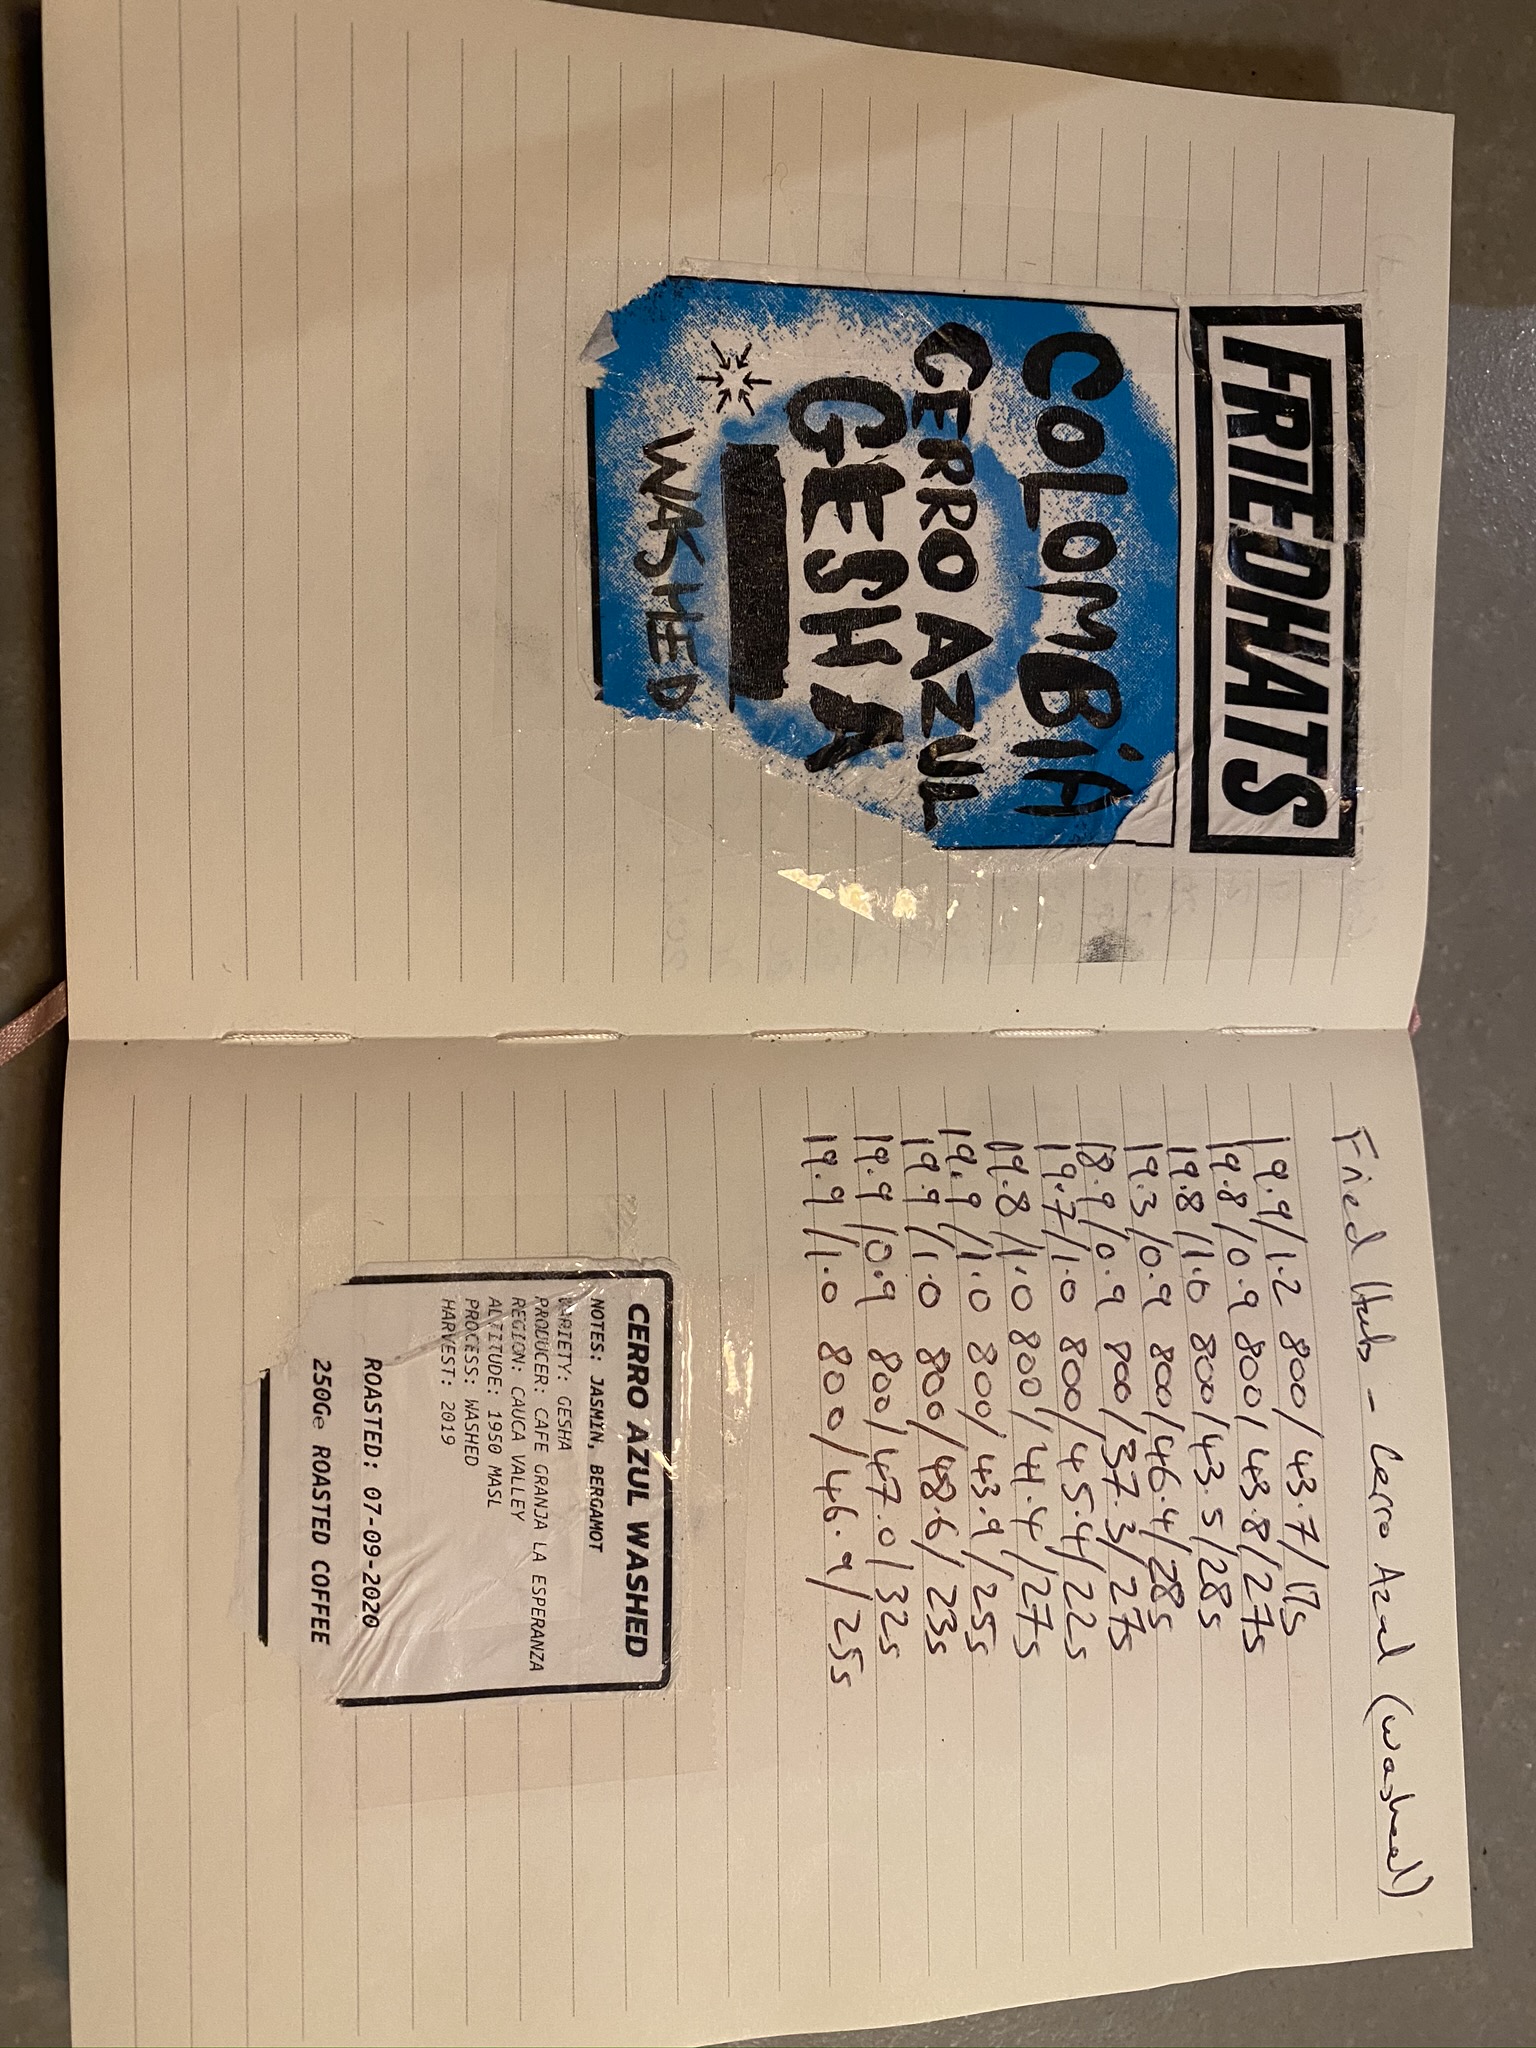 FRIEDHATS
COLOMBIA
CERRO AZUL
GESHA
WASHED
Fried Hats - Cerro Azul (washed)
19.9/1.2 800/43.7/17s
19.8/0.9 800/43.8/27s
19.8/1.0 800/43.5/28s
19.3/0.9 800/46.4/28s
18.9/0.9 800/37.3/27s
19.7/1.0 800/45.4/22s
19.8/1.0 800/44.4/27s
19.9/1.0 800/43.9/25s
19.9/1.0 800/48.6/23s
19.9/0.9 800/47.0/32s
19.9/1.0 800/46.9/25s
CERRO AZUL WASHED
NOTES: JASMIN, BERGAMOT
VARIETY: GESHA
PRODUCER: CAFE GRANJA LA ESPERANZA
REGION: CAUCA VALLEY
ALTITUDE: 1950 MASL
PROCESS: WASHED
HARVEST: 2019
ROASTED: 07-09-2020
250Ge ROASTED COFFEE